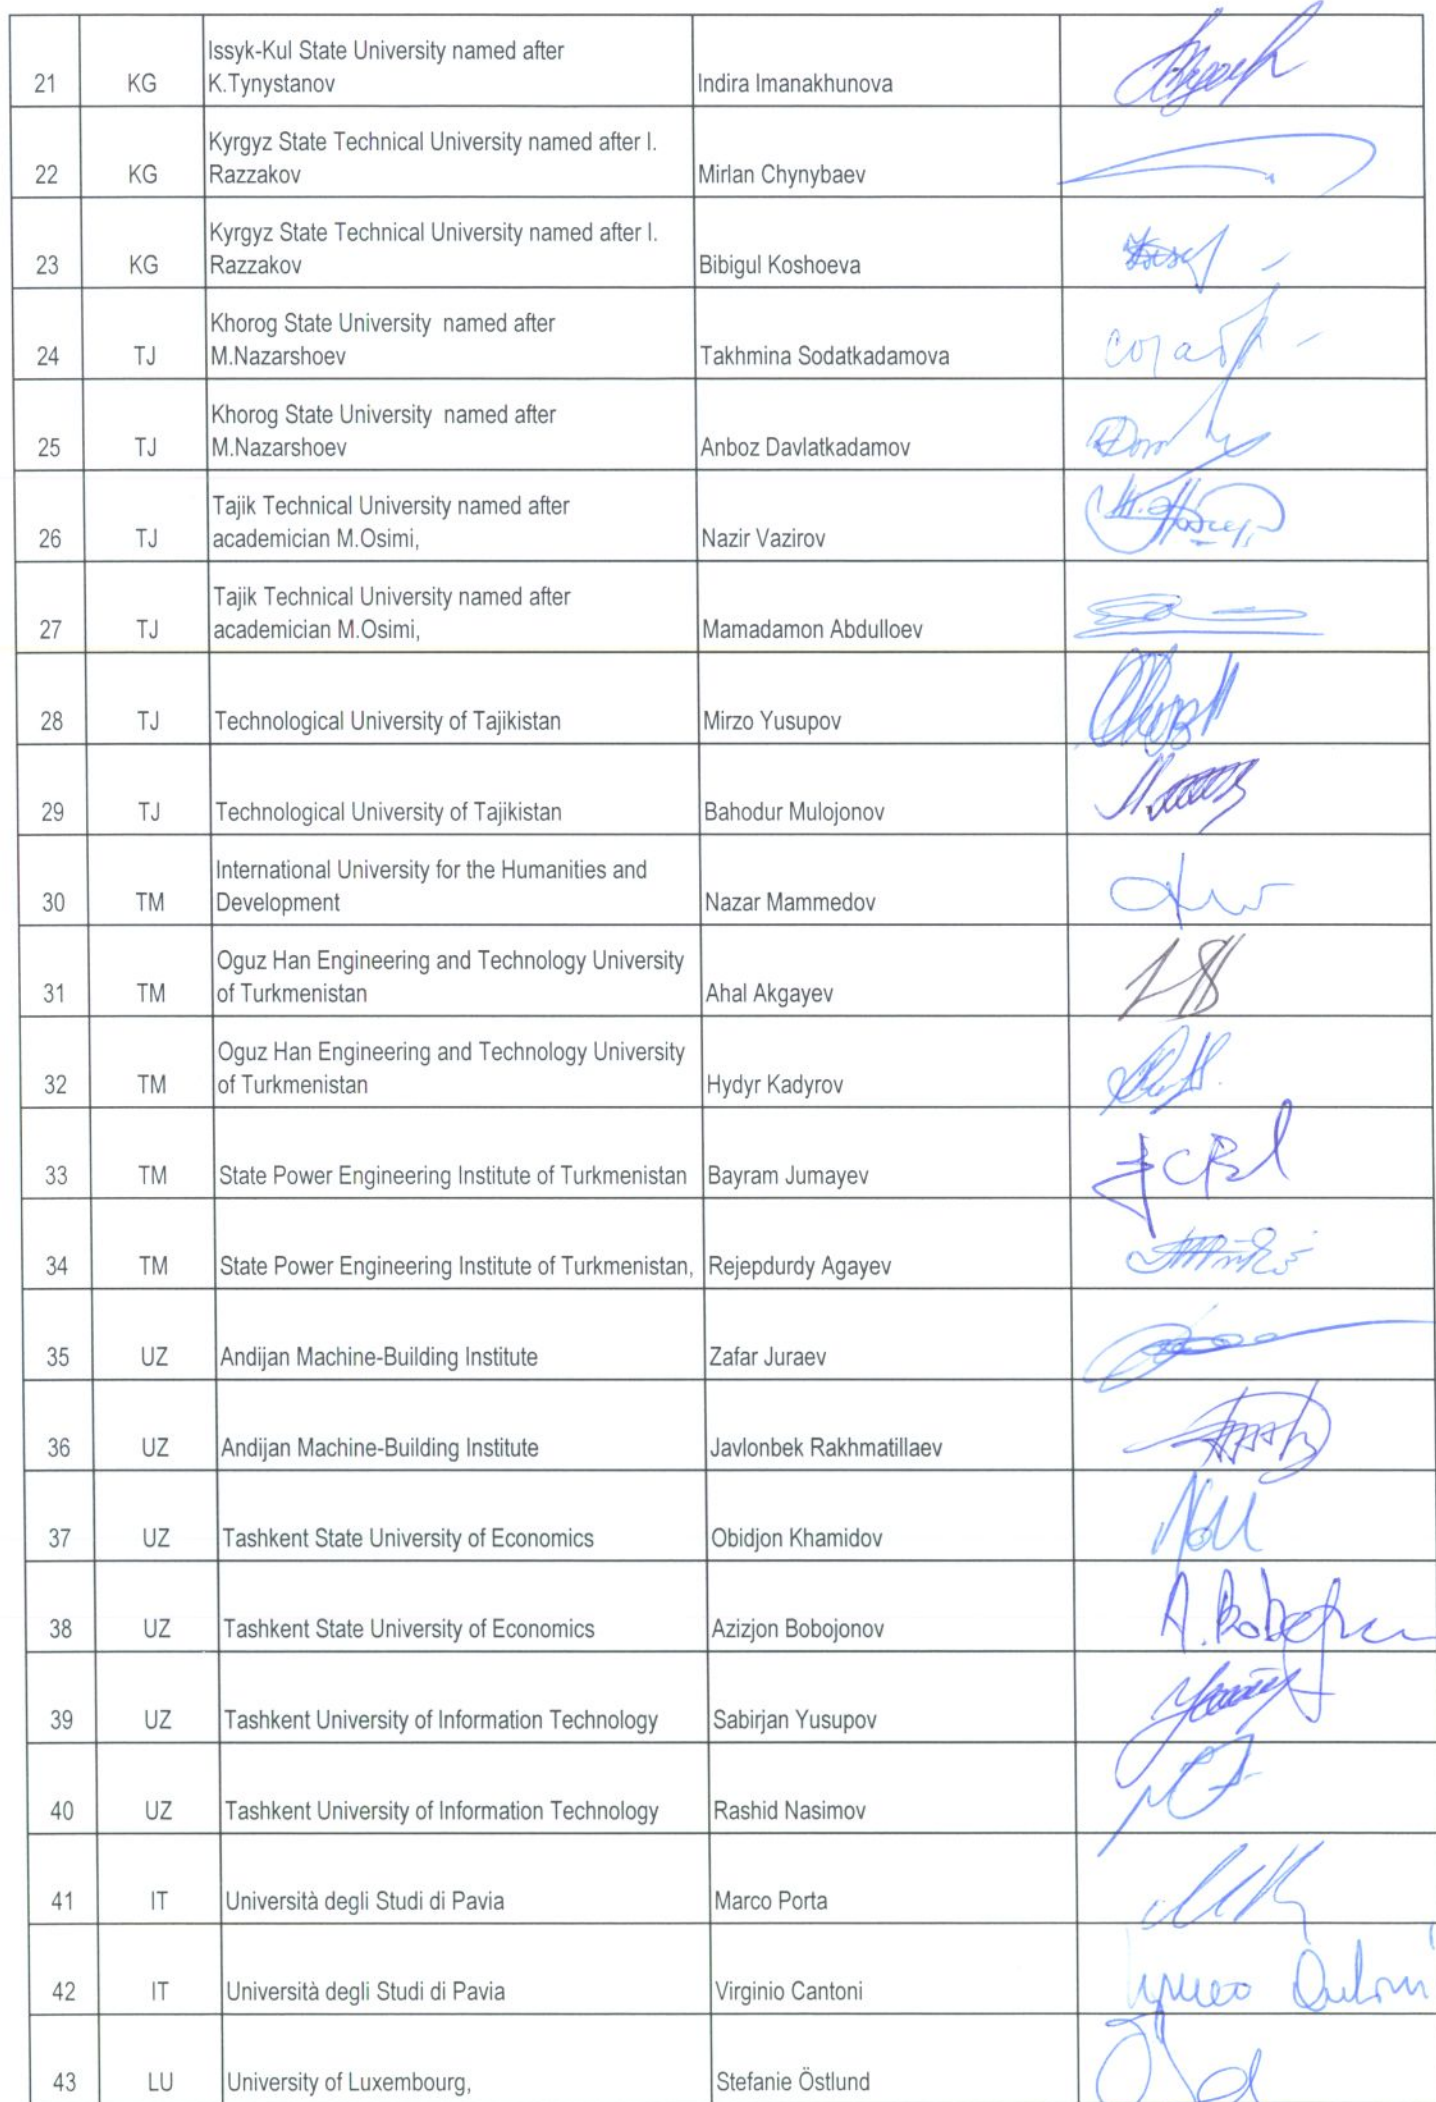 Issyk-Kul State University named after
21 KG K.Tynystanov Indira Imanakhunova
Kyrgyz State Technical University named after I.
22 KG Razzakov Mirlan Chynybaev
Kyrgyz State Technical University named after I.
23 KG Razzakov Bibigul Koshoeva
Khorog State University named after
24 TJ M.Nazarshoev Takhmina Sodatkadamova
Khorog State University named after
25 TJ M.Nazarshoev Anboz Davlatkadamov
Tajik Technical University named after
26 TJ academician M.Osimi, Nazir Vazirov
Tajik Technical University named after
27 TJ academician M.Osimi, Mamadamon Abdulloev
28 TJ Technological University of Tajikistan Mirzo Yusupov
29 TJ Technological University of Tajikistan Bahodur Mulojonov
International University for the Humanities and
30 TM Development Nazar Mammedov
Oguz Han Engineering and Technology University
31 TM of Turkmenistan Ahal Akgayev
Oguz Han Engineering and Technology University
32 TM of Turkmenistan Hydyr Kadyrov
33 TM State Power Engineering Institute of Turkmenistan Bayram Jumayev
34 TM State Power Engineering Institute of Turkmenistan, Rejepdurdy Agayev
35 UZ Andijan Machine-Building Institute Zafar Juraev
36 UZ Andijan Machine-Building Institute Javlonbek Rakhmatillaev
37 UZ Tashkent State University of Economics Obidjon Khamidov
38 UZ Tashkent State University of Economics Azizjon Bobojonov
39 UZ Tashkent University of Information Technology Sabirjan Yusupov
40 UZ Tashkent University of Information Technology Rashid Nasimov
41 IT Università degli Studi di Pavia Marco Porta
42 IT Università degli Studi di Pavia Virginio Cantoni
43 LU University of Luxembourg, Stefanie Östlund